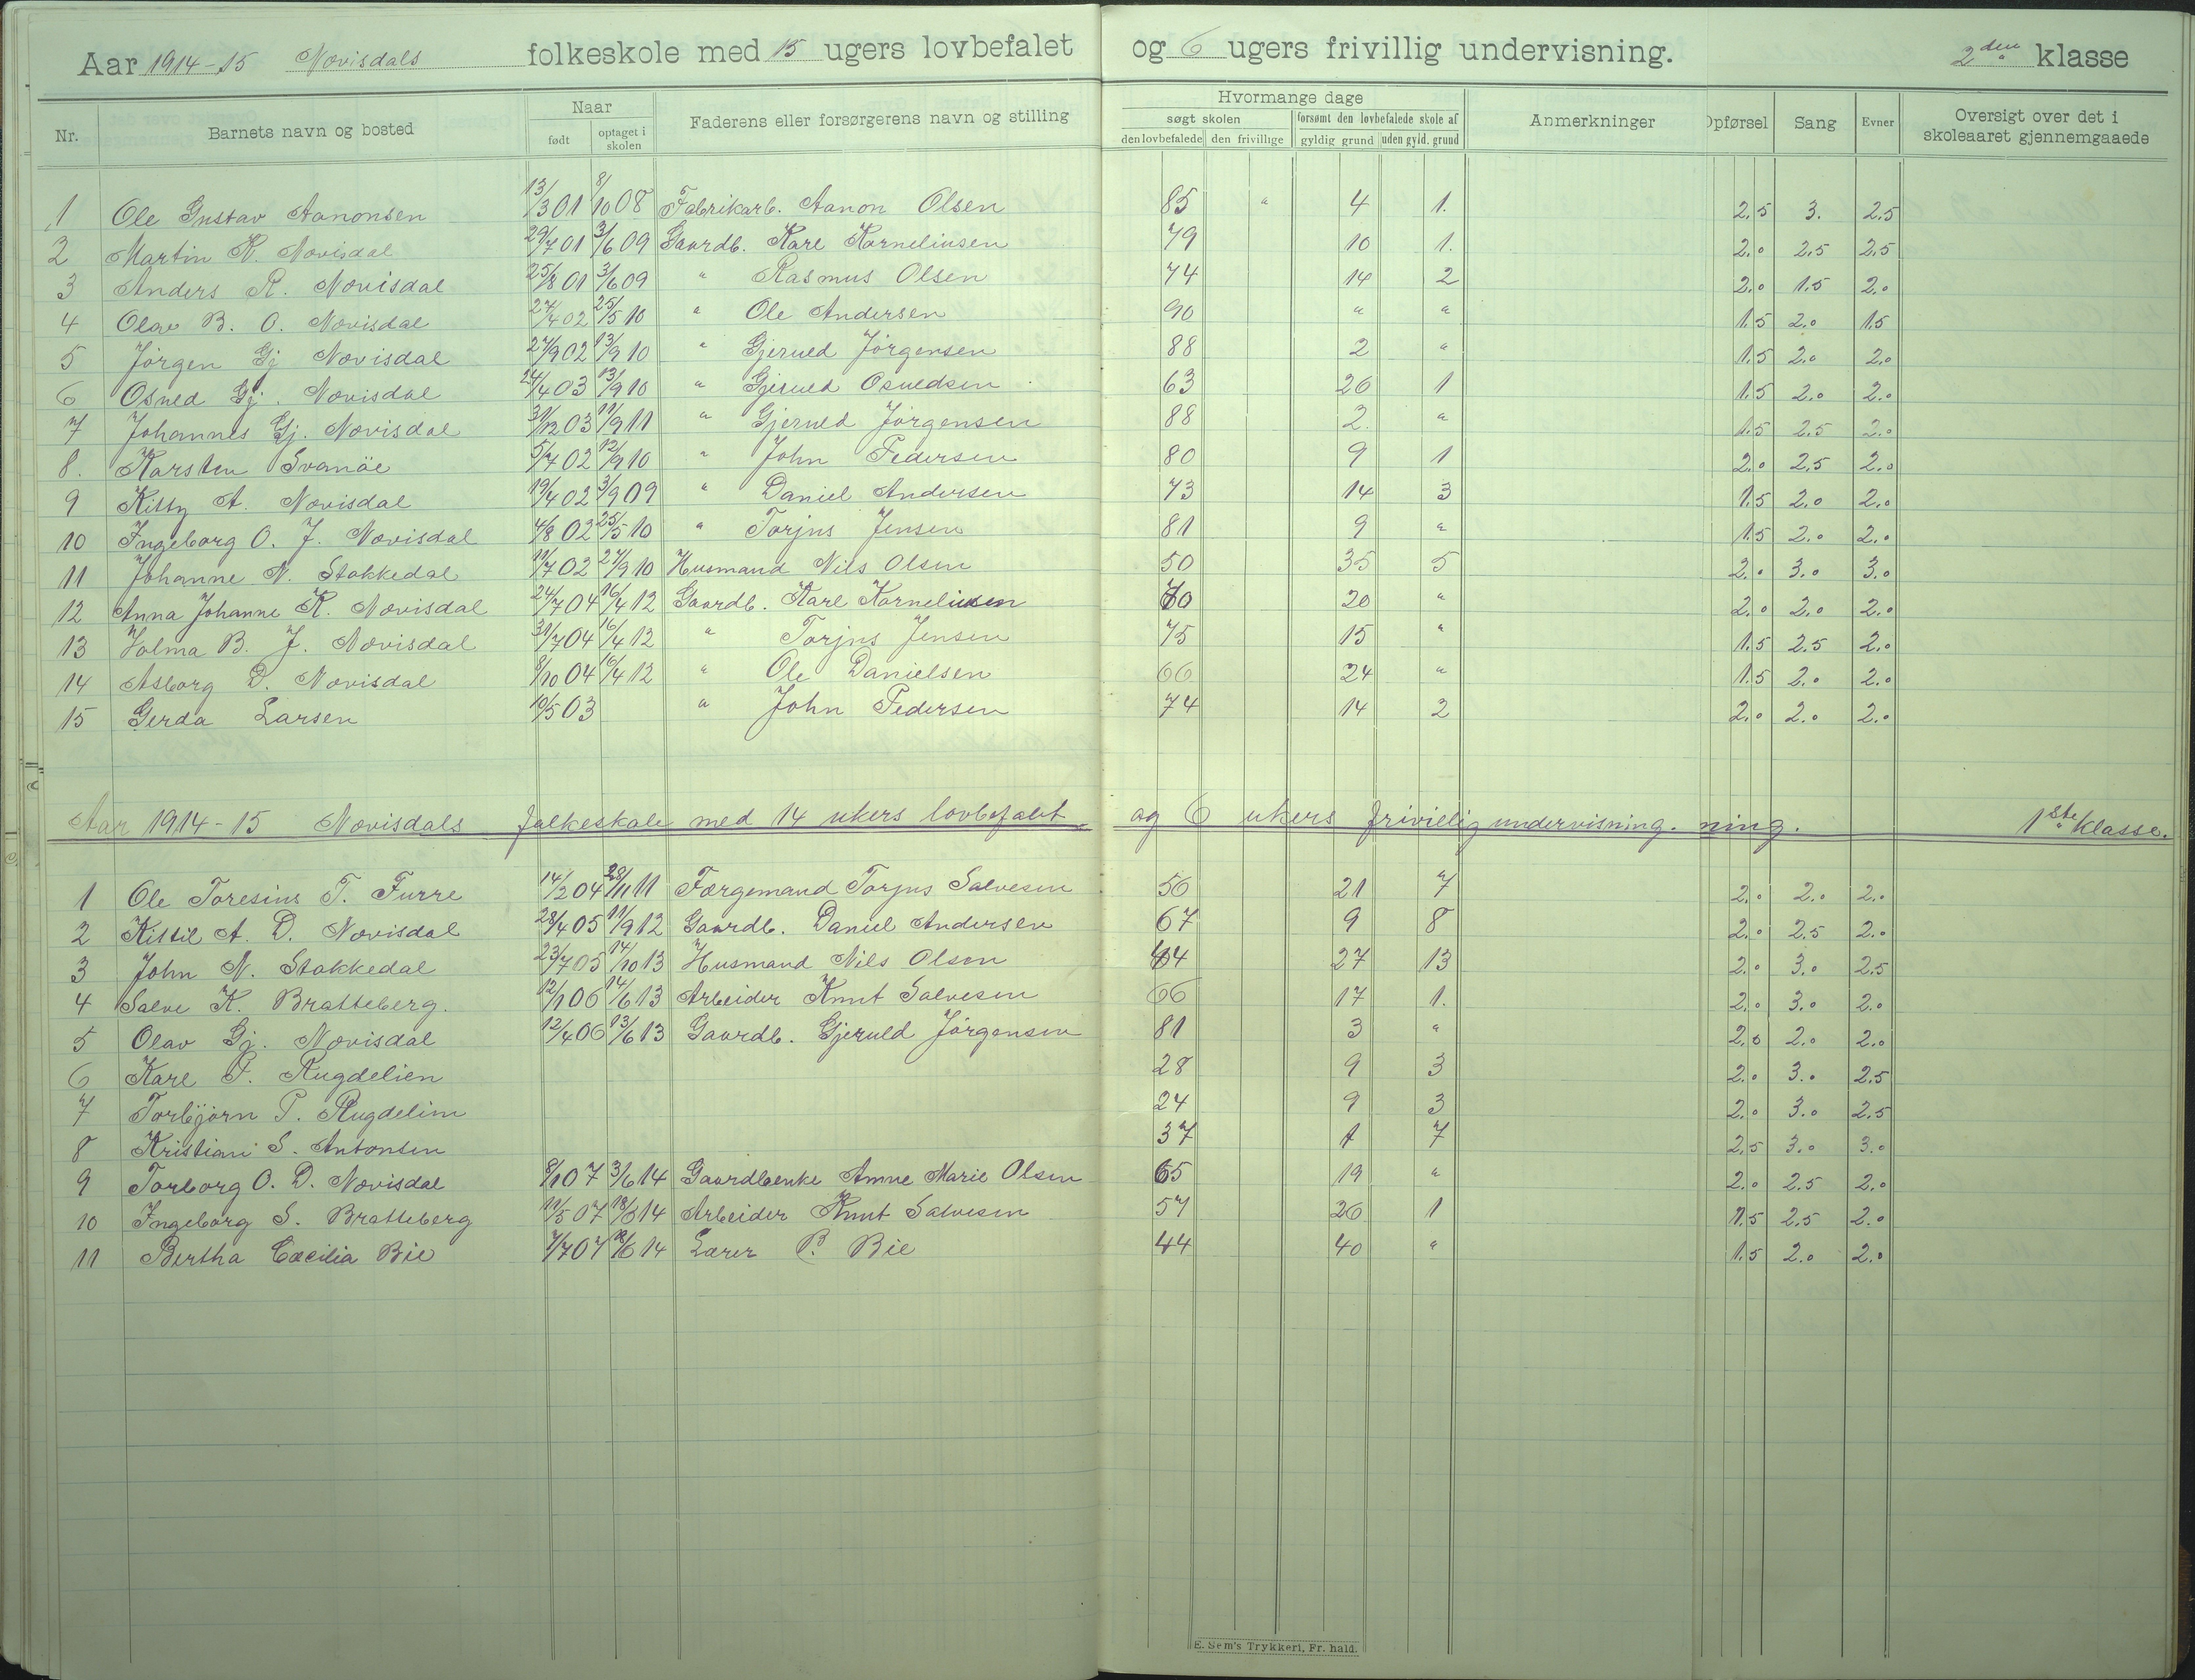 Aar 1914-15 Novisdals folkeskole med 15 ugers lovbefalet og 6 ugers frivillig undervisning. 2den klasse
Nr. Barnets navn og bosted Naar født optaget i skolen Faderens eller forsørgerens navn og stilling Hvormange dage søgt skolen den lovbefalede den frivillige forsømt den lovbefalede skole af gyldig grund uden gyld. grund Anmerkninger Opførsel Sang Evner Oversigt over det i skoleaaret gjennemgaaede
1 Ole Gustav Aanonsen 13/3 01 8/10 08 Fabrikarb. Aanon Olsen 85 " 4 1. 2.5 3. 2.5
2 Martin K. Novisdal 29/7 01 3/6 09 Gaardb. Kare Korneliusen 79 10 1. 2.0 2.5 2.5
3 Anders R. Novisdal 25/8 01 3/6 09 " Rasmus Olsen 74 14 2 2.0 1.5 2.0
4 Olav B. O. Novisdal 27/4 02 25/5 10 " Ole Andersen 90 " " 1.5 2.0 1.5
5 Jørgen Gj Novisdal 27/9 02 13/9 10 " Gjeruld Jørgensen 88 2 " 1.5 2.0 2.0
6 Osued Gj. Novisdal 24/4 03 13/9 10 " Gjeruld Osuedsen 63 26 1 1.5 2.0 2.0
7 Johannes Gj. Novisdal 31/12 03 11/9 11 " Gjeruld Jørgensen 88 2. " 1.5 2.5 2.0
8. Karsten Svanøe 5/7 02 12/9 10 " John Pedersen 80 9 1 2.0 2.5 2.0
9 Kitty A. Novisdal 19/4 02 3/9 09 " Daniel Andersen 73 14 3 1.5 2.0 2.0
10 Ingeborg O. J. Novisdal 4/8 02 25/5 10 " Torjus Jensen 81 9 " 1.5 2.0 2.0
11 Johanne N. Stokkedal 11/7 02 27/9 10 Husmand Nils Olsen 50 35 5 2.0 3.0 3.0
12 Anna Johanne K. Novisdal 24/7 04 16/4 12 Gaardb. Kare Korneliusen 70 20 " 2.0 2.0 2.0
13 Valma B. J. Novisdal 31/7 04 16/4 12 " Torjus Jensen 75 15 " 1.5 2.5 2.0
14 Asborg D. Novisdal 8/10 04 16/4 12 " Ole Danielsen 66 24 " 1.5 2.0 2.0
15 Gerda Larsen 10/5 03 " John Pedersen 74 14 2 2.0 2.0 2.0
Aar 1914-15 Novisdals folkeskole med 14 ukers lovbefalet og 6 ukers frivillig undervisning. ning. 1ste klasse.
1 Ole Toresius T. Furre 14/2 04 28/11 11 Færgemand Torjus Salvesen 56 21 7 2.0 2.0 2.0
2 Kittil A. D. Novisdal 28/4 05 11/9 12 Gaardb. Daniel Andersen 67 9 8 2.0 2.5 2.0
3 John N. Stokkedal 23/7 05 14/10 13 Husmand Nils Olsen 44 27 13 2.0 3.0 2.5
4 Salve K. Bratteberg. 12/1 06 14/6 13 Arbeider Knut Salvesen 66 17 1. 2.0 3.0 2.0
5 Olav Gj. Novisdal 12/4 06 13/6 13 Gaardb. Gjeruld Jørgensen 81 3 " 2.0 2.0 2.0
6 Kare P. Rugdelien 28 9 3 2.0 3.0 2.5
7 Torbjørn P. Rugdelien 24 9 3 2.0 3.0 2.5
8 Kristian S. Antonsen 37 1 7 2.5 3.0 3.0
9 Torborg O. D. Novisdal 8/1 07 3/6 14 Gaardbenke Anne Marie Olsen 65 19 " 2.0 2.5 2.0
10 Ingeborg S. Bratteberg 11/5 07 18/6 14 Arbeider Knut Salvesen 57 26 1 1.5 2.5 2.0
11 Bertha Cæcilia Bie 7/7 07 18/6 14 Lærer P. Bie 44 40 " 1.5 2.0 2.0
E. Sem's Trykkeri, Fr.hald.